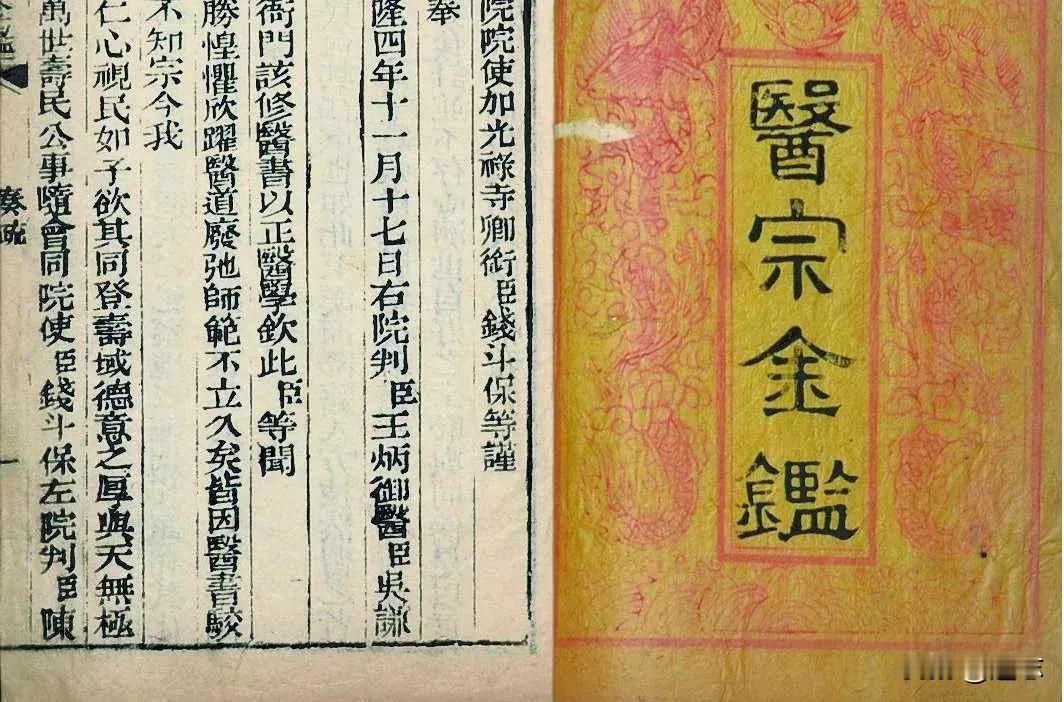 醫宗金鑑
院院使加光祿寺卿銜臣錢斗保等謹
奉
隆四年十一月十七日右院判臣王炳御醫臣吳謙
衙門該修醫書以正醫學欽此臣等聞
勝惶懼欣躍醫道廢弛師範不立久矣皆因醫書駁
不知宗今我
仁心視民如子欲其同登壽域德意之厚與天無極
萬世壽民公事隨會同院使臣錢斗保左院判臣陳
奏疏